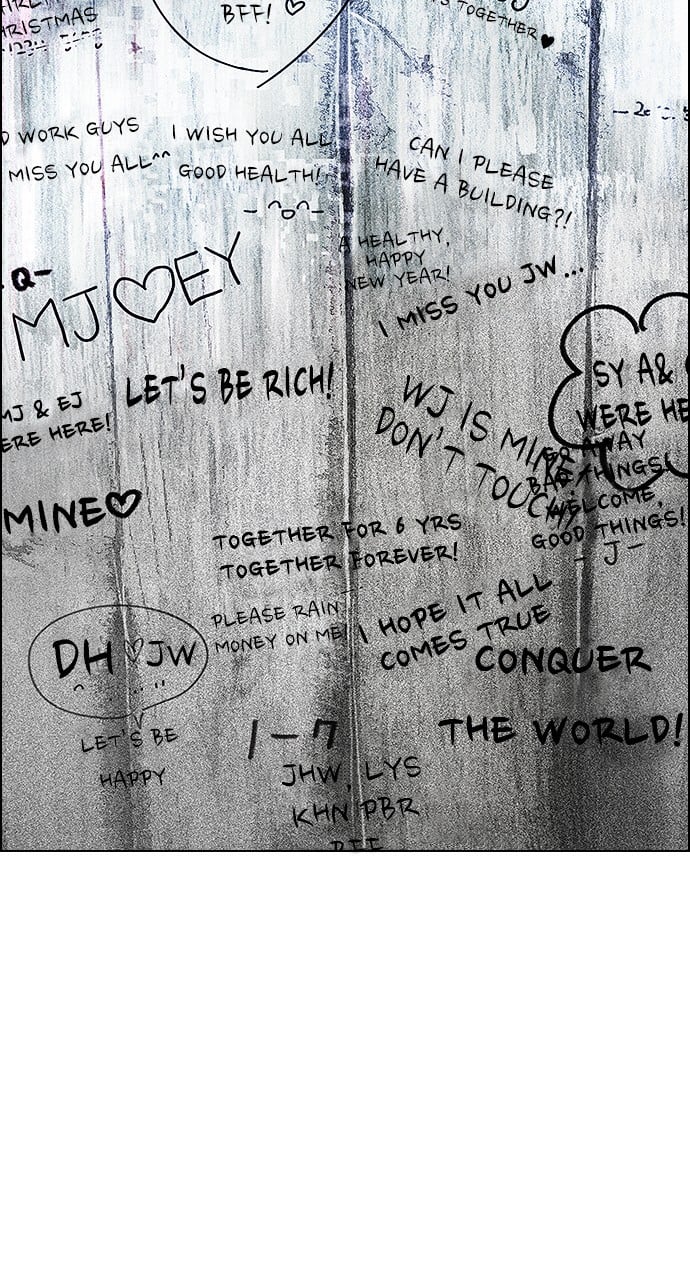 BFF!
TOGETHER
WORK GUYS
MISS YOU ALL^^
I WISH YOU ALL
GOOD HEALTH!
CAN I PLEASE
HAVE A BUILDING?!
A HEALTHY,
HAPPY
NEW YEAR!
I MISS YOU JW...
Q-
MJ♡EY
LET'S BE RICH!
MJ & EJ
ERE HERE!
SY A&
WERE HE
WJ IS MINE
DON'T TOUCH!
AWAY
BAD THINGS!
WELCOME,
GOOD THINGS!
- J -
MINE♡
TOGETHER FOR 6 YRS
TOGETHER FOREVER!
PLEASE RAIN
MONEY ON ME
I HOPE IT ALL
COMES TRUE
DH♡JW
LET'S BE
HAPPY
CONQUER
THE WORLD!
1-7
JHW, LYS
KHN PBR